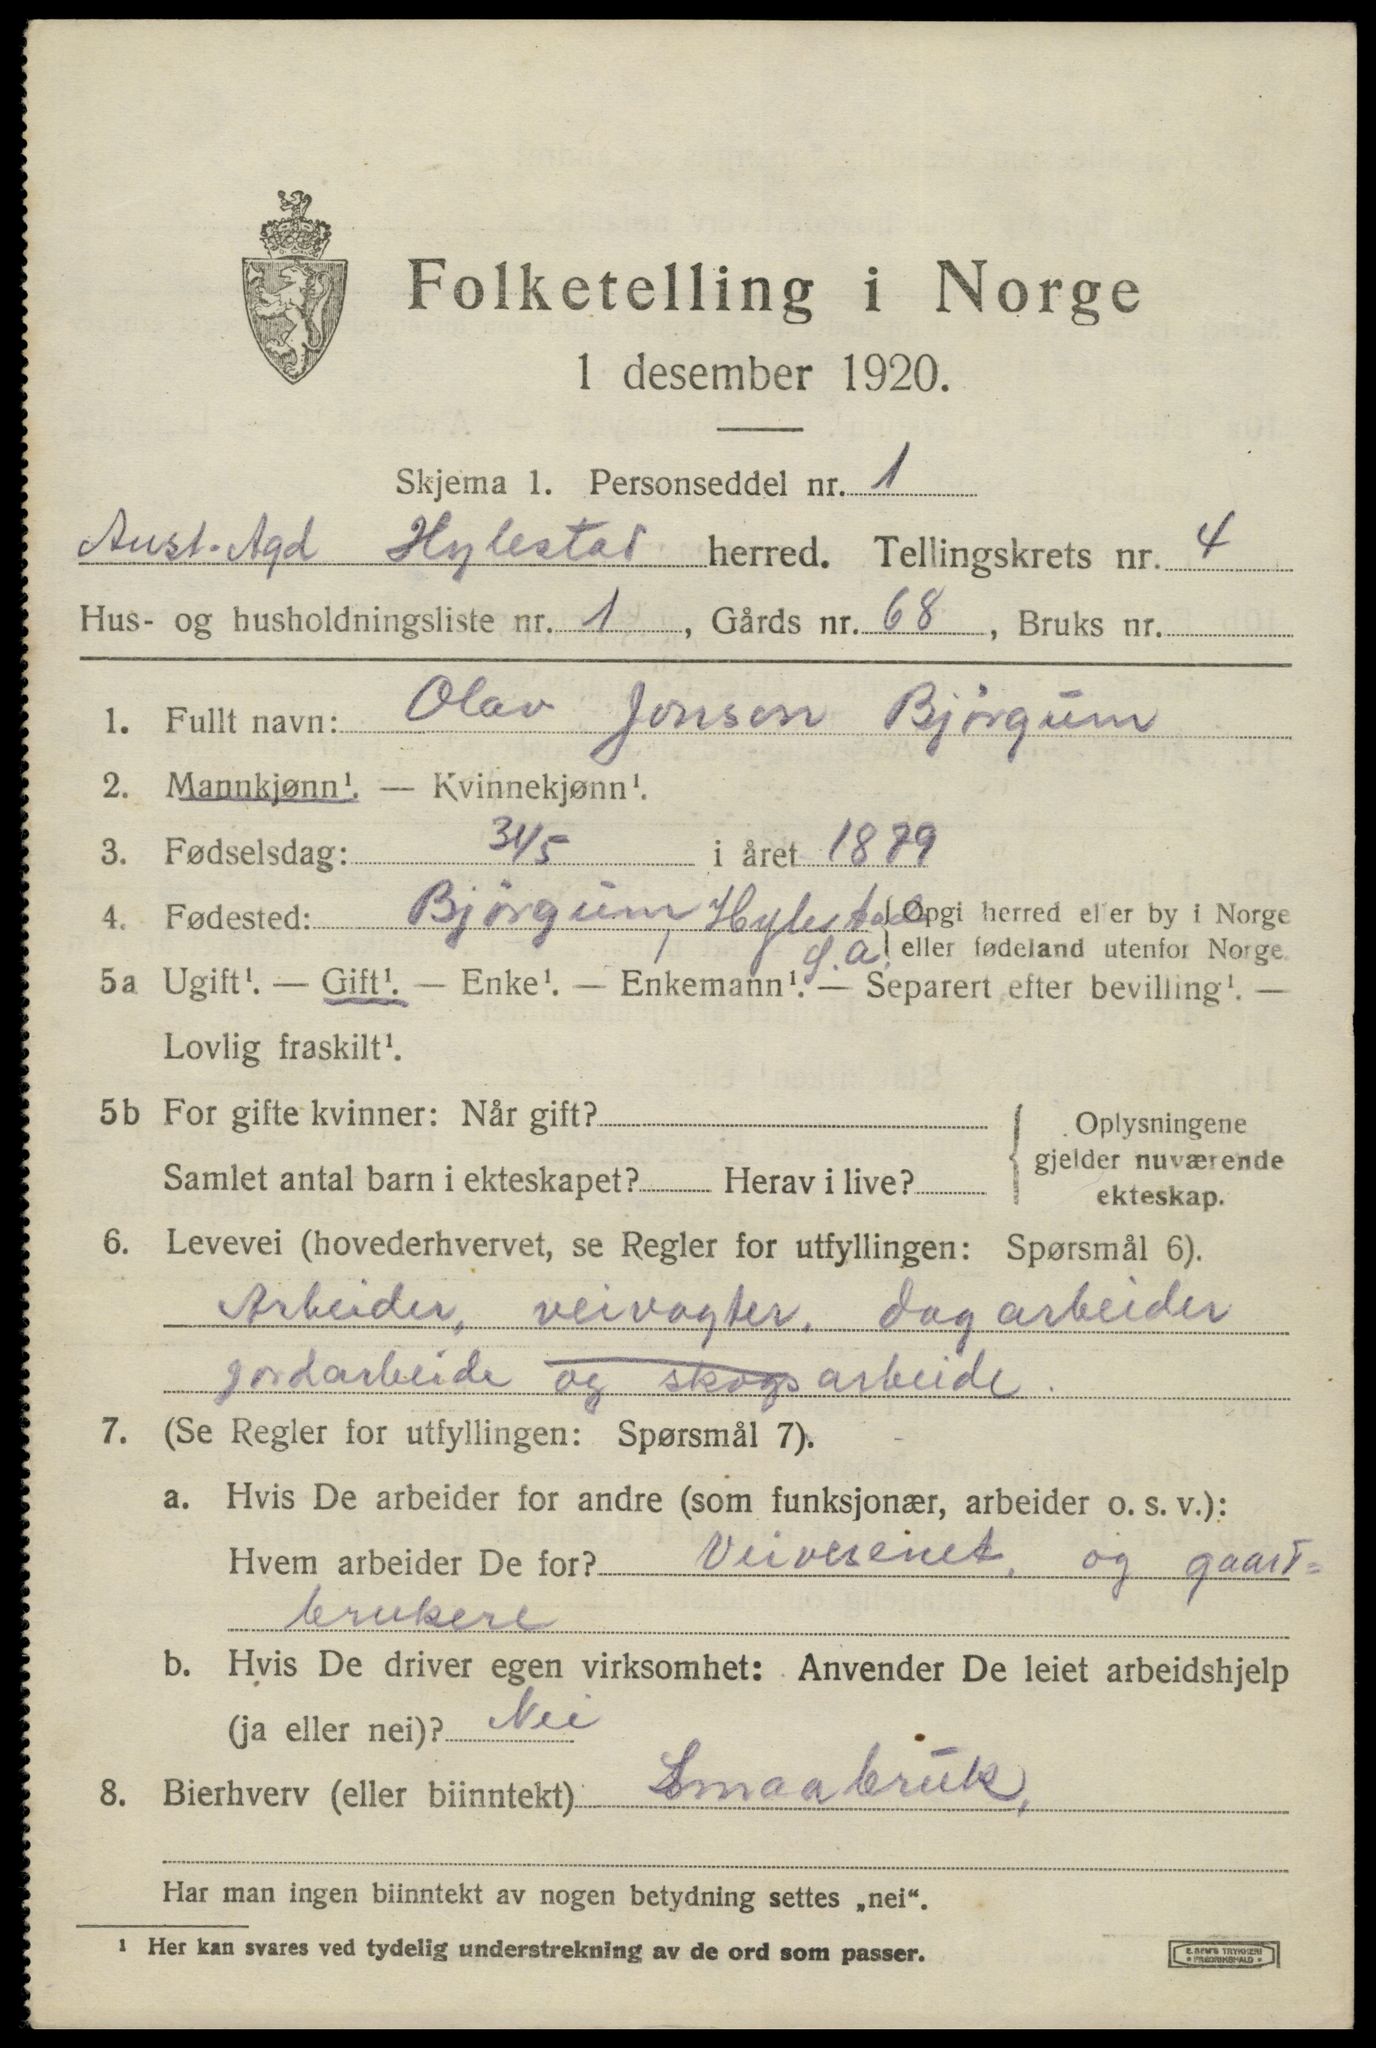 Folketelling i Norge
1 desember 1920.
Skjema 1. Personseddel nr. 1
Aust-Agd Hylestad herred. Tellingskrets nr. 4
Hus- og husholdningsliste nr. 1, Gårds nr. 68, Bruks nr.
1. Fullt navn: Olav Jonson Bjørgum
2. Mannkjønn¹. — Kvinnekjønn¹.
3. Fødselsdag: 31/5 i året 1879
4. Fødested: Bjørgum, Hylestad { Opgi herred eller by i Norge
eller fødeland utenfor Norge.
5a Ugift¹. — Gift¹. — Enke¹. — Enkemann¹. — Separert efter bevilling¹. —
Lovlig fraskilt¹.
5b For gifte kvinner: Når gift? { Oplysningene
gjelder nuværende
Samlet antal barn i ekteskapet? Herav i live?
ekteskap.
6. Levevei (hovederhvervet, se Regler for utfyllingen: Spørsmål 6).
Arbeider, veivogter, dagarbeider
jordarbeide og skogsarbeide.
7. (Se Regler for utfyllingen: Spørsmål 7).
a. Hvis De arbeider for andre (som funksjonær, arbeider o. s. v.):
Hvem arbeider De for? Veivesenet, og gaard=
brukere
b. Hvis De driver egen virksomhet: Anvender De leiet arbeidshjelp
(ja eller nei)? Nei
8. Bierhverv (eller biinntekt) Smaabruk,
Har man ingen biinntekt av nogen betydning settes „nei“.
¹ Her kan svares ved tydelig understrekning av de ord som passer.
E. SEM'S TRYKKERI
FREDRIKSHALD